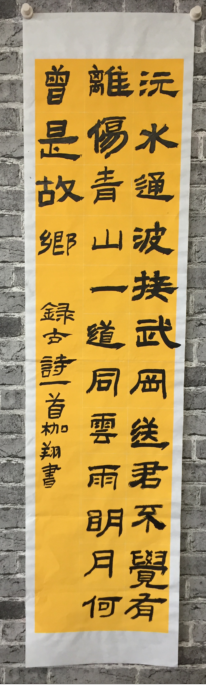 沅水通波接武岡送君不覺有
離傷青山一道同雲雨明月何
曾是故鄉
錄古詩一首枷翔書